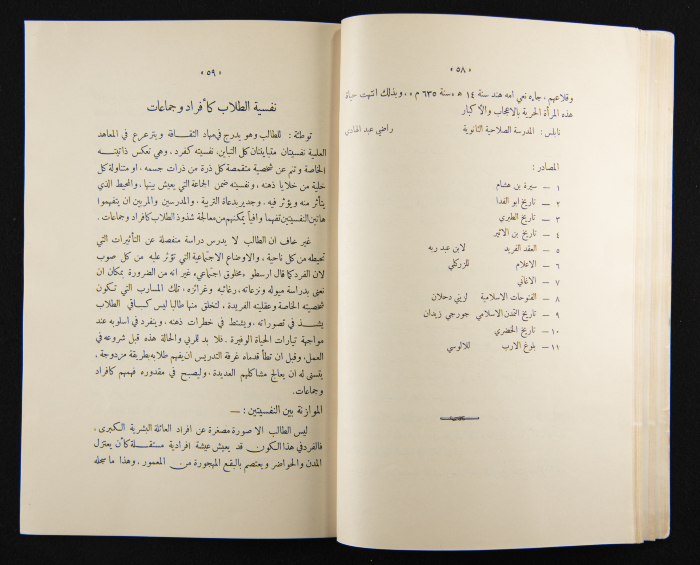 « ٥٨ »
وقلاعهم ، جاءه نعي امه هند سنة ١٤ ه «سنة ٦٣٥ م» ، وبذلك انتهت حياة
هذه المرأة الحرية بالاعجاب والاكبار
نابلس : المدرسة الصلاحية الثانوية راضي عبد الهادي
المصادر :
١ — سيرة بن هشام
٢ — تاريخ ابو الفدا
٣ — تاريخ الطبري
٤ — تاريخ بن الاثير
٥ — العقد الفريد لابن عبد ربه
٦ — الاعلام للزركلي
٧ — الاغاني
٨ — الفتوحات الاسلامية لزيني دحلان
٩ — تاريخ التمدن الاسلامي جورجي زيدان
١٠ — تاريخ الخضري
١١ — بلوغ الارب للالوسي
« ٥٩ »
نفسية الطلاب كأفراد وجماعات
توطئة : للطالب وهو يدرج في مهاد الثقافة ويترعرع في المعاهد
العلمية نفسيتان متباينتان كل التباين. نفسيته كفرد ، وهي تعكس ذاتيته
الخاصة وتنم عن شخصية متقمصة كل ذرة من ذرات جسمه ، او متناولة كل
خلية من خلايا ذهنه ، ونفسيته ضمن الجماعة التي يعيش بينها ، والمحيط الذي
يتأثر منه ويؤثر فيه . وجدير بدعاة التربية ، والمدرسين والمربين ان يتفهموا
هاتين النفسيتين تفهما وافياً يمكنهم من معالجة شذوذ الطلاب كافراد وجماعات .
غير خاف ان الطالب لا يدرس دراسة منفصلة عن التأثيرات التي
تحيطه من كل ناحية ، والاوضاع الاجتماعية التي تؤثر عليه من كل صوب
لان الفرد كما قال ارسطو مخلوق اجتماعي ، غير انه من الضرورة بمكان ان
نعنى بدراسة ميوله ونزعاته ، رغائبه وغرائزه ، تلك المسارب التي تتكون
شخصيته الخاصة وعقليته الفريدة ، لتخلق منها طالبا ليس كباقي الطلاب
يشذ في تصوراته ، ويشتط في خطرات ذهنه ، وينفرد في اسلوبه عند
مواجهة تيارات الحياة الوفيرة . فلا بد للمربي والحالة هذه قبل شروعه في
العمل ، وقبل ان تطأ قدماه غرفة التدريس ان يفهم طلابه بطريقة مزدوجة ،
يتسنى له ان يعالج مشاكلهم العديدة ، وليصبح في مقدوره فهمهم كافراد
وجماعات .
الموازنة بين النفسيتين : —
ليس الطالب الا صورة مصغرة عن افراد العائلة البشرية الكبرى ،
فالفرد في هذا الكون قد يعيش عيشة افرادية مستقلة كأن يعتزل
المدن والحواضر ويعتصم بالبقع المهجورة من المعمور ، وهذا ما سجله